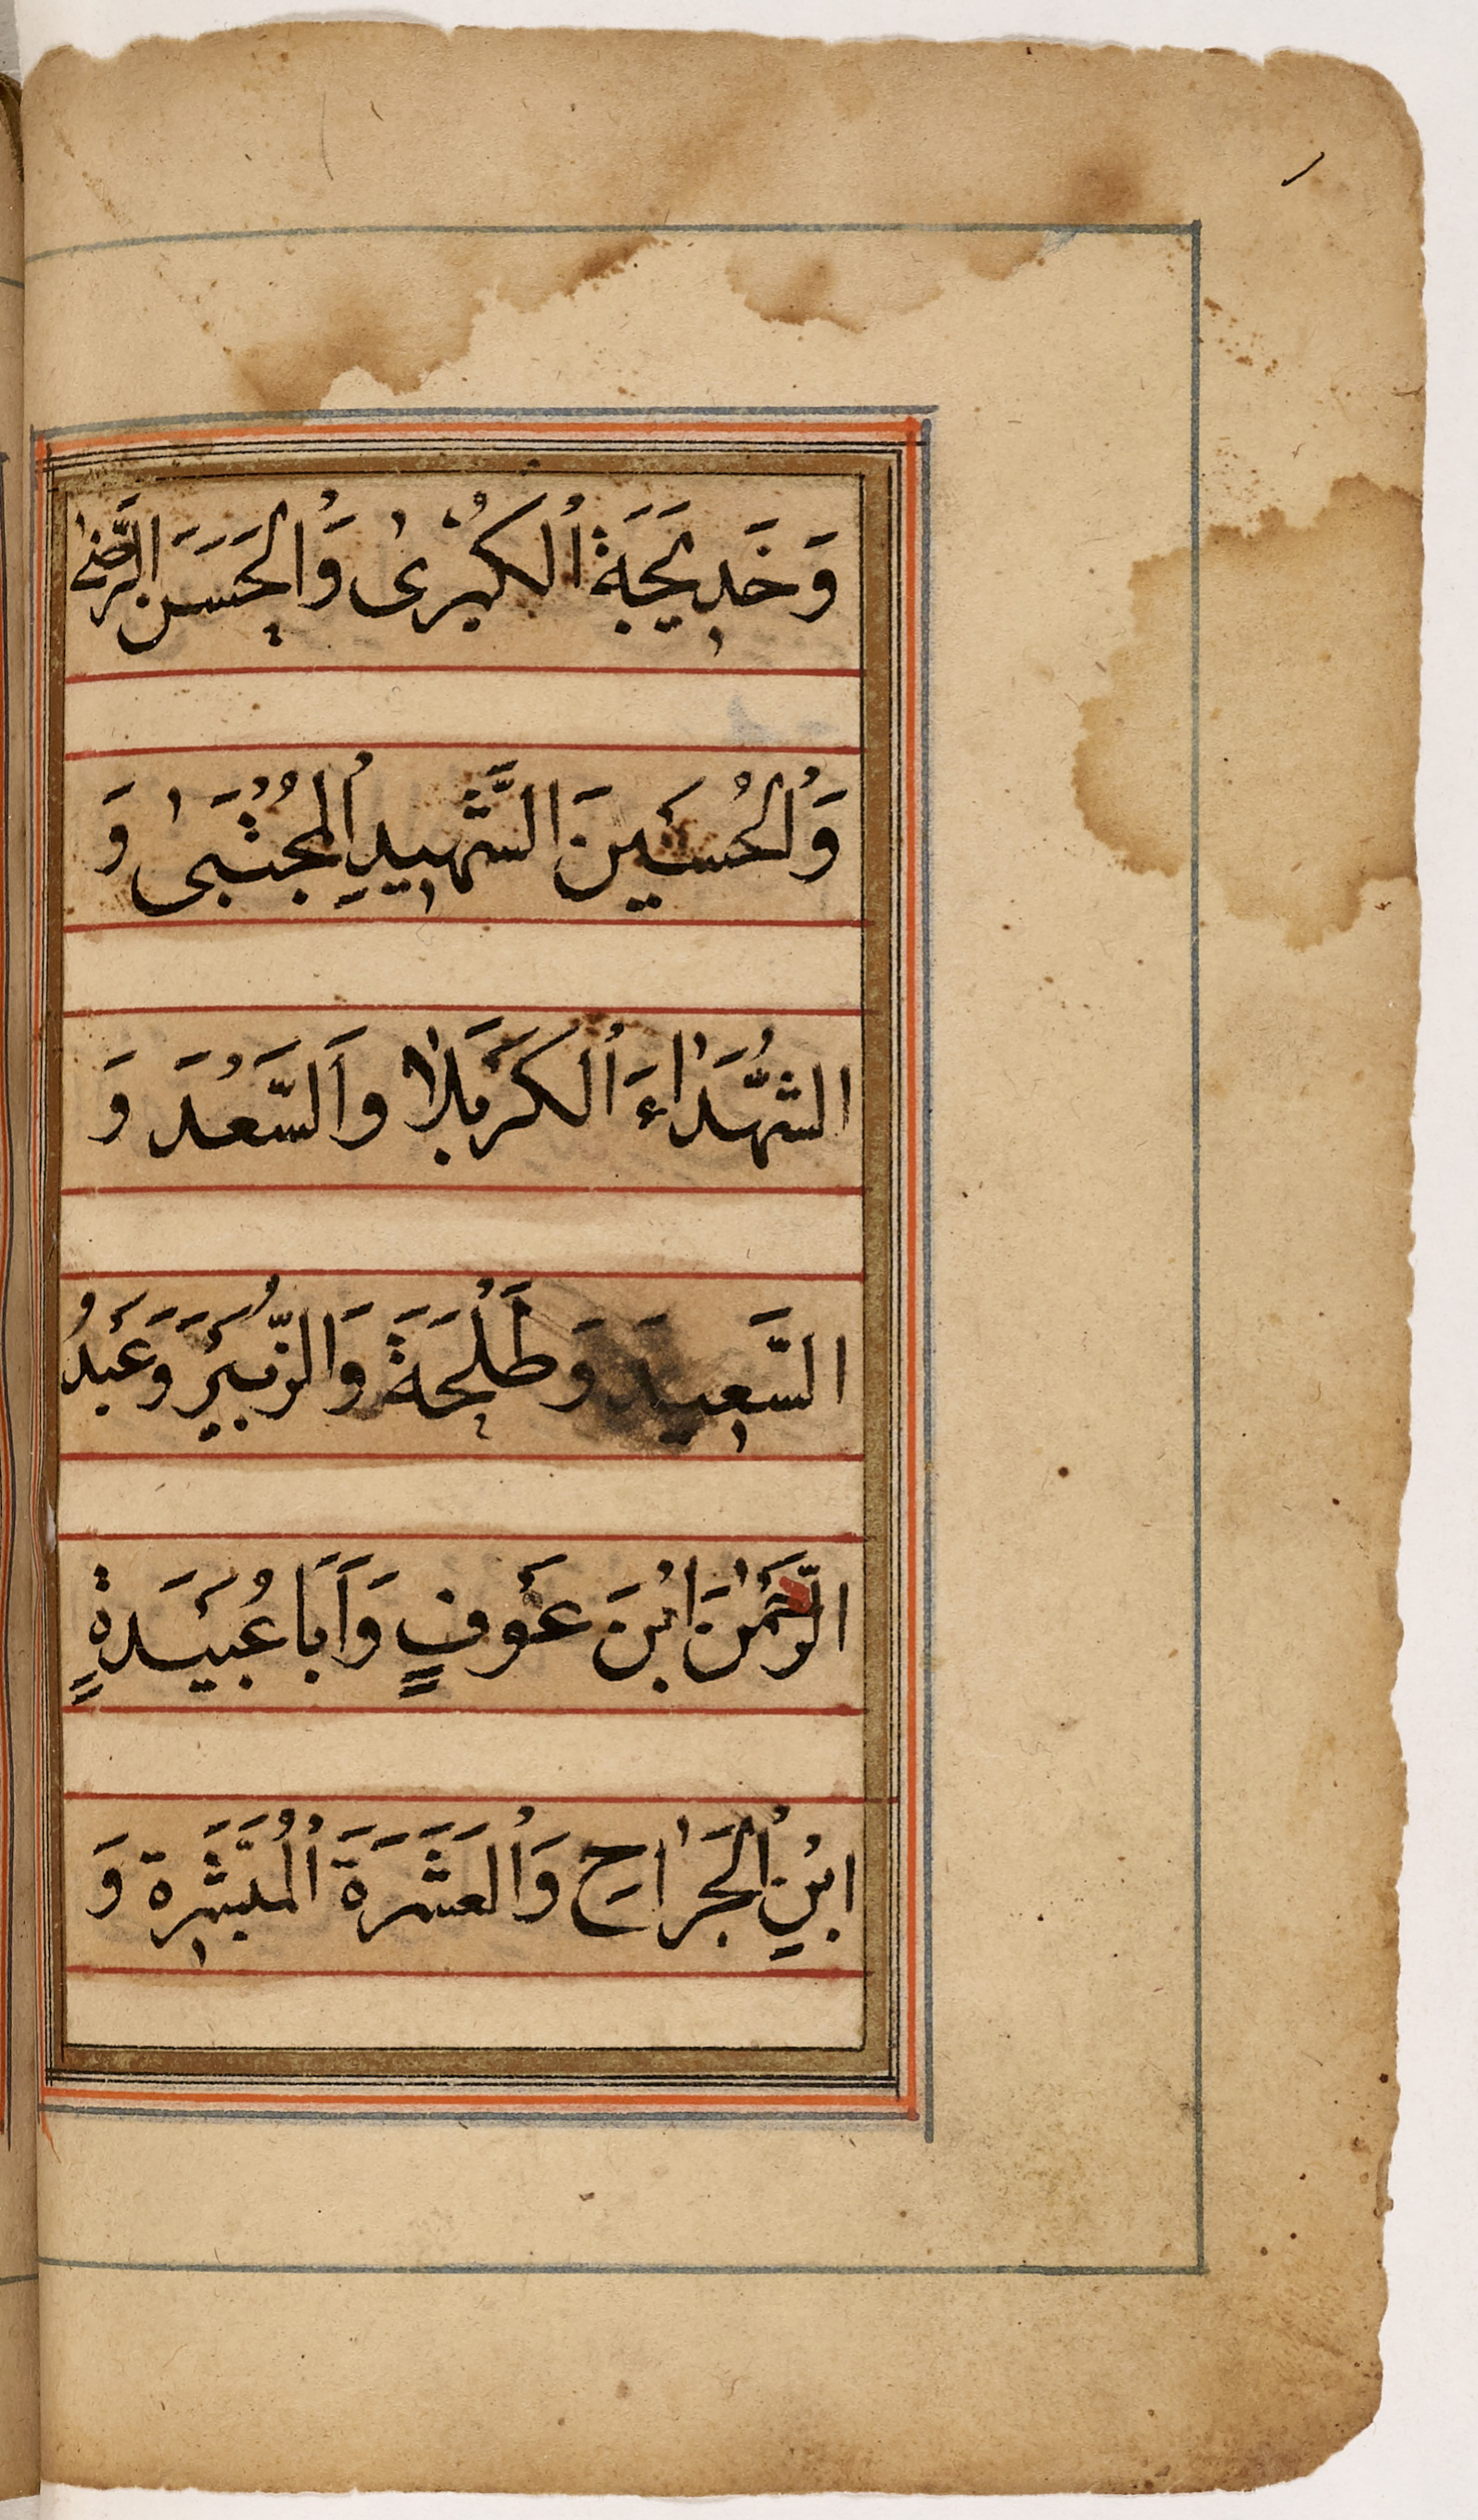 وَخَدِيجَةَ الْكُبْرىٰ وَالْحَسَنَ الرَّضىٰ
وَالْحُسَيْنَ الشَّهِيدِ الْمُجْتَبىٰ وَ
الشُّهَدَاءَ الْكَرْبَلَا وَالسَّعْدَ وَ
السَّعِيدَ وَطَلْحَةَ وَالزُّبَيْرَ وَعَبْدُ
الرَّحْمٰنَ ابْنَ عَوْفٍ وَاَبَا عُبَيْدَةٍ
ابْنِ الْجَرَّاحِ وَالْعَشَرَةَ الْمُبَشِّرَة وَ